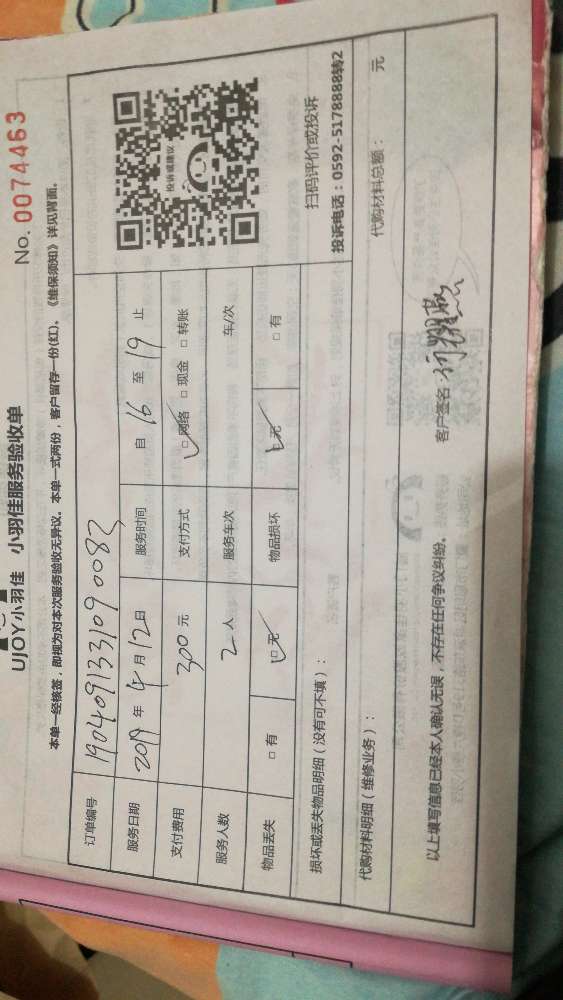 UJOY小羽佳 小羽佳服务验收单
No. 0074463
本单一经核签，即视为对本次服务验收无异议。本单一式两份，客户留存一份(红)。《维保须知》详见背面。
订单编号 190409133109 0082
服务日期 2019 年 4 月 12 日 服务时间 自 16 至 19 止
支付费用 300 元 支付方式 ☑网络 □现金 □转账
服务人数 2 人 服务车次 车/次
物品丢失 □有 ☑无 物品损坏 ☑无 □有
投诉或建议
扫码评价或投诉
投诉电话：0592-5178888转2
损坏或丢失物品明细（没有可不填）：
代购材料明细（维修业务）： 代购材料总额： 元
以上填写信息已经本人确认无误，不存在任何争议纠纷。 客户签名：